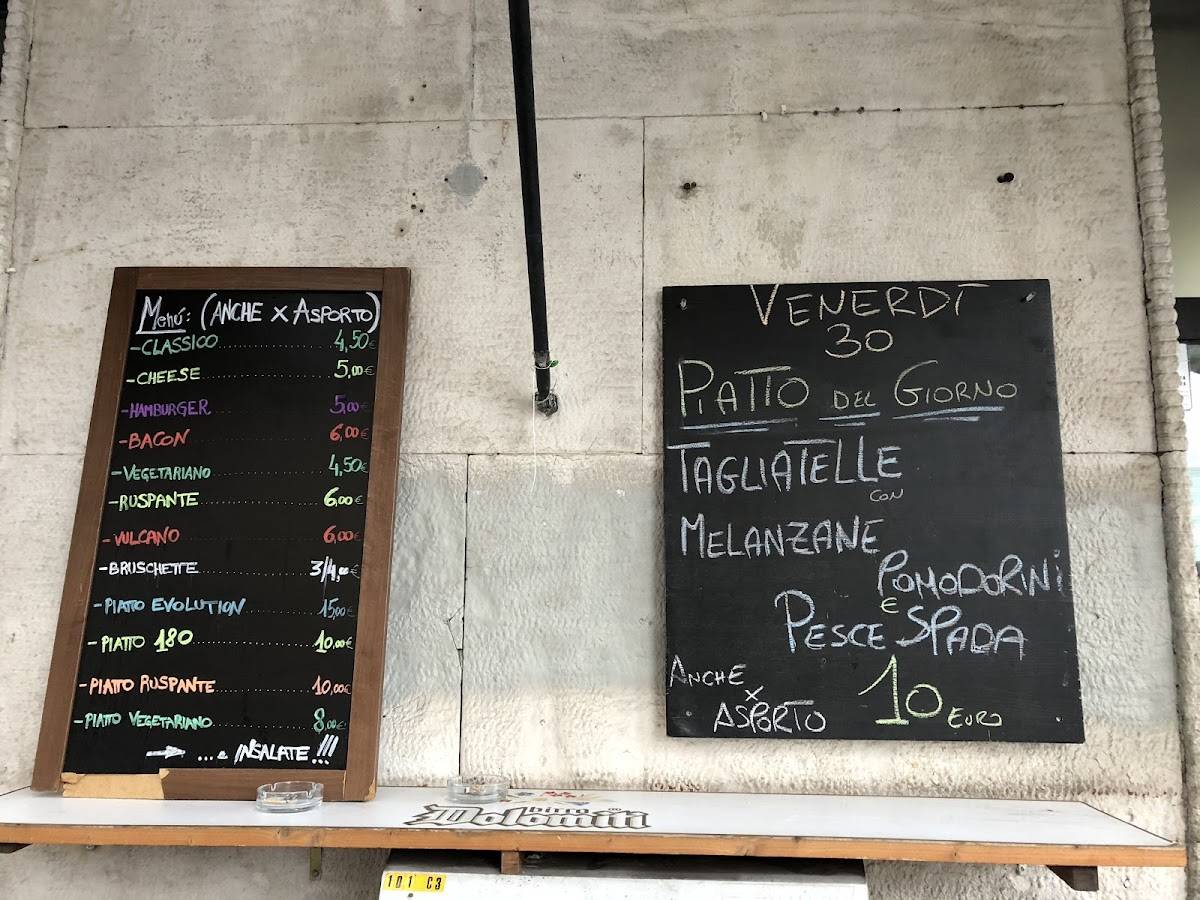 Menú: (ANCHE X ASPORTO)
-CLASSICO 4,50€
-CHEESE 5,00€
-HAMBURGER 5,00€
-BACON 6,00€
-VEGETARIANO 4,50€
-RUSPANTE 6,00€
-VULCANO 6,00€
-BRUSCHETTE 3/4,00€
-PIATTO EVOLUTION 15,00€
-PIATTO 180 10,00€
-PIATTO RUSPANTE 10,00€
-PIATTO VEGETARIANO 8,00€
→ ...e INSALATE!!!
VENERDÌ
30
PIATTO DEL GIORNO
TAGLIATELLE
CON
MELANZANE
POMODORINI
E
PESCE SPADA
ANCHE
X
ASPORTO
10 EURO
birra
Dolomiti
101 C3